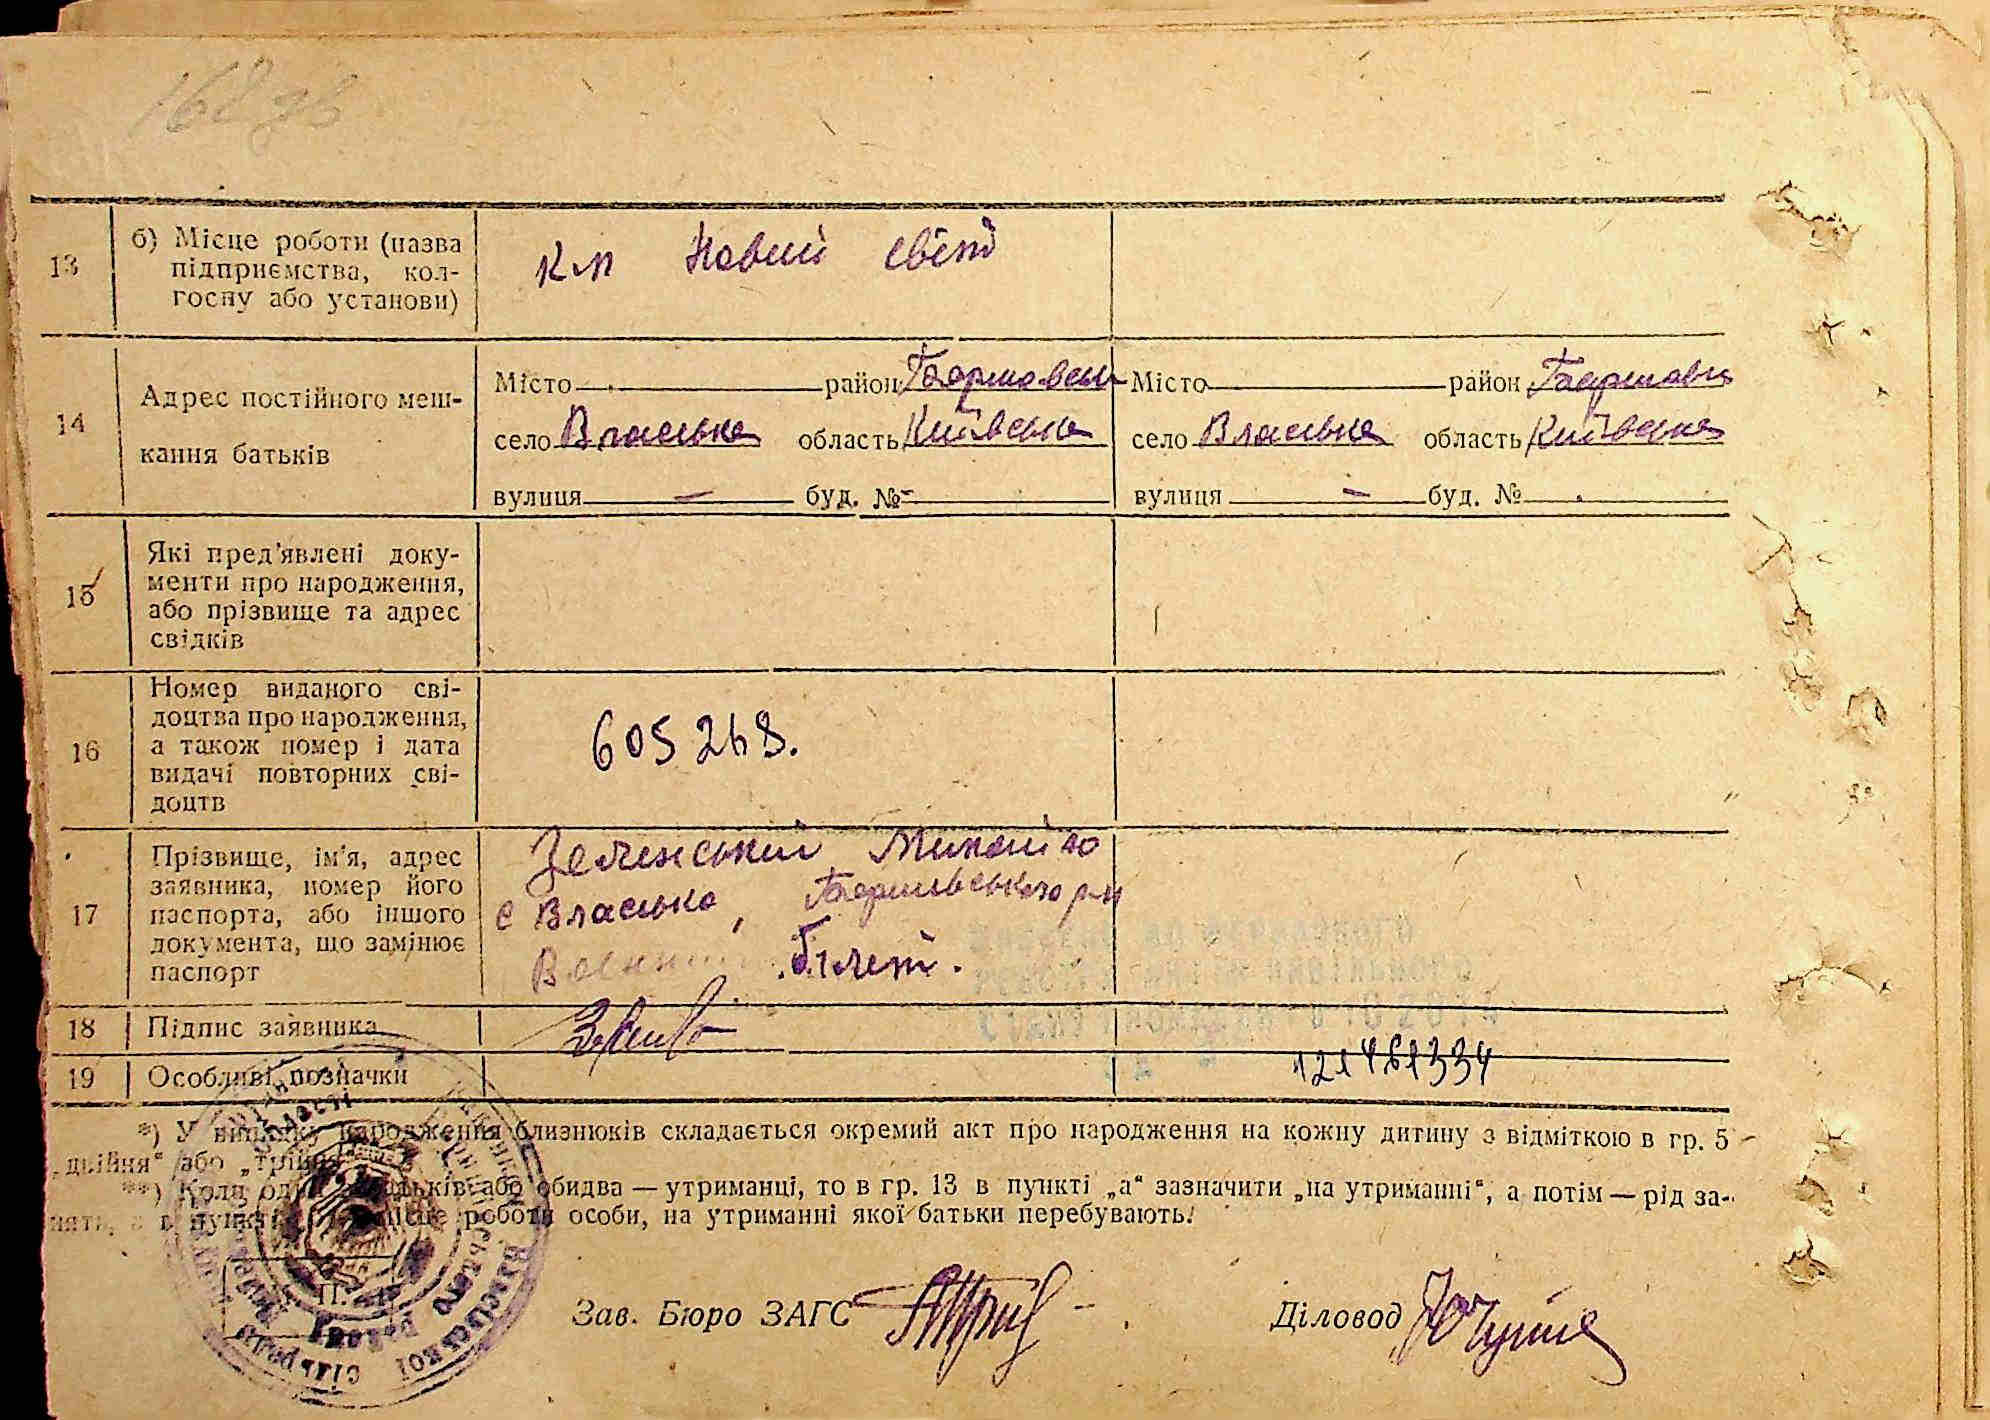 168 зв
13
б) Місце роботи (назва
підприємства, кол-
госпу або установи)
к-п Новий світ
14
Адрес постійного меш-
кання батьків
Місто район
село Власівка область Київська
вулиця — буд. № -
Місто район
село Власівка область Київська
вулиця — буд. №
15
Які пред'явлені доку-
менти про народження,
або прізвище та адрес
свідків
16
Номер виданого сві-
доцтва про народження,
а також номер і дата
видачі повторних сві-
доцтв
605268.
17
Прізвище, ім'я, адрес
заявника, номер його
паспорта, або іншого
документа, що замінює
паспорт
Зеленський Михайло
с Власівка,
Военний білет.
18 Підпис заявника
19 Особливі позначки
*) У випадку народження близнюків складається окремий акт про народження на кожну дитину з відміткою в гр. 5
„двійня“ або „трійня“.
**) Коли один з батьків або обидва — утриманці, то в гр. 13 в пункті „а“ зазначити „на утриманні“, а потім — рід за-
няття, а в пункті місце роботи особи, на утриманні якої батьки перебувають.
Зав. Бюро ЗАГС
Діловод